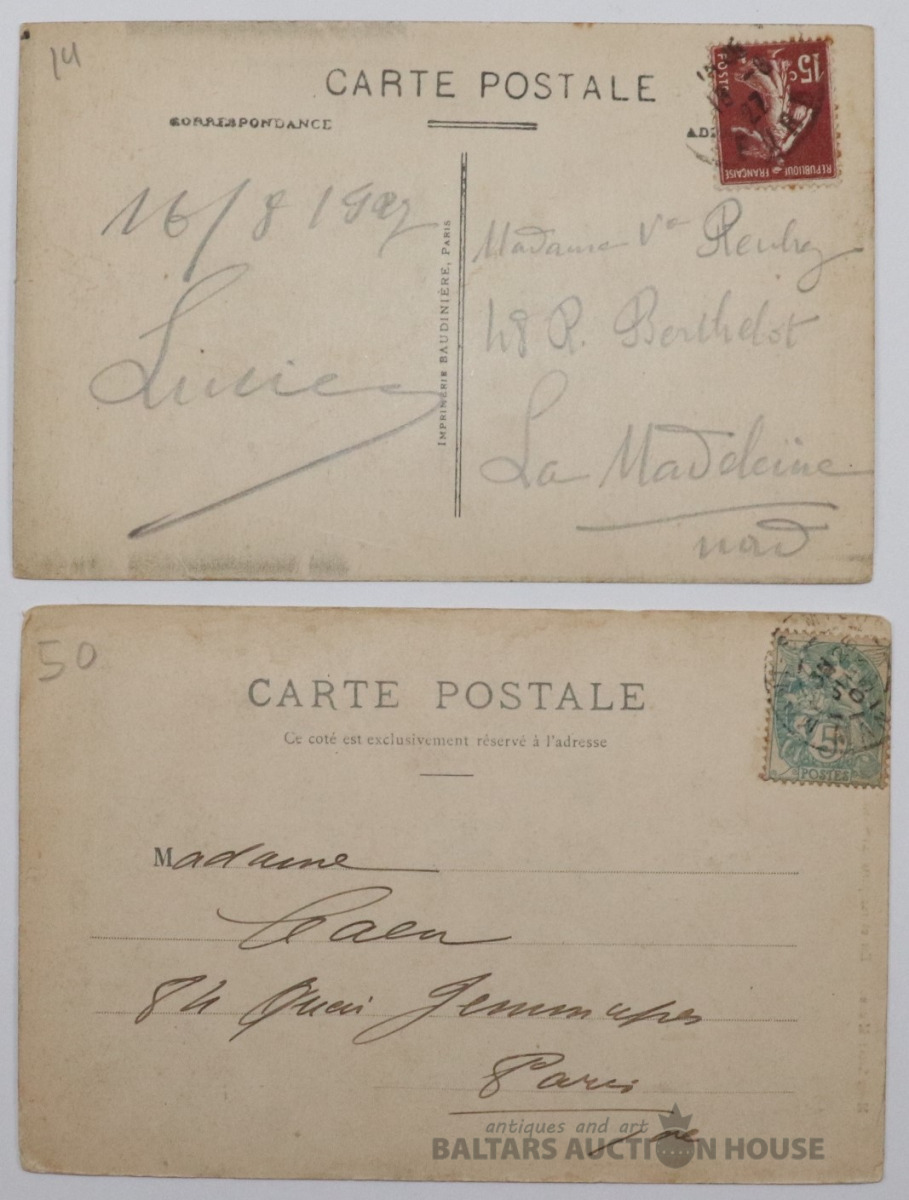 14
CARTE POSTALE
CORRESPONDANCE
AD
15c
POSTES
REPUBLIQUE FRANÇAISE
27
16/8/1927
IMPRIMERIE BAUDINIÈRE, PARIS
Madame Ve
48 R. Berthelot
La Madeleine
nord
50
CARTE POSTALE
Ce coté est exclusivement réservé à l'adresse
5
POSTES
Madame
84 Quai Jemmapes
Paris
antiques and art
BALTARS AUCTION HOUSE